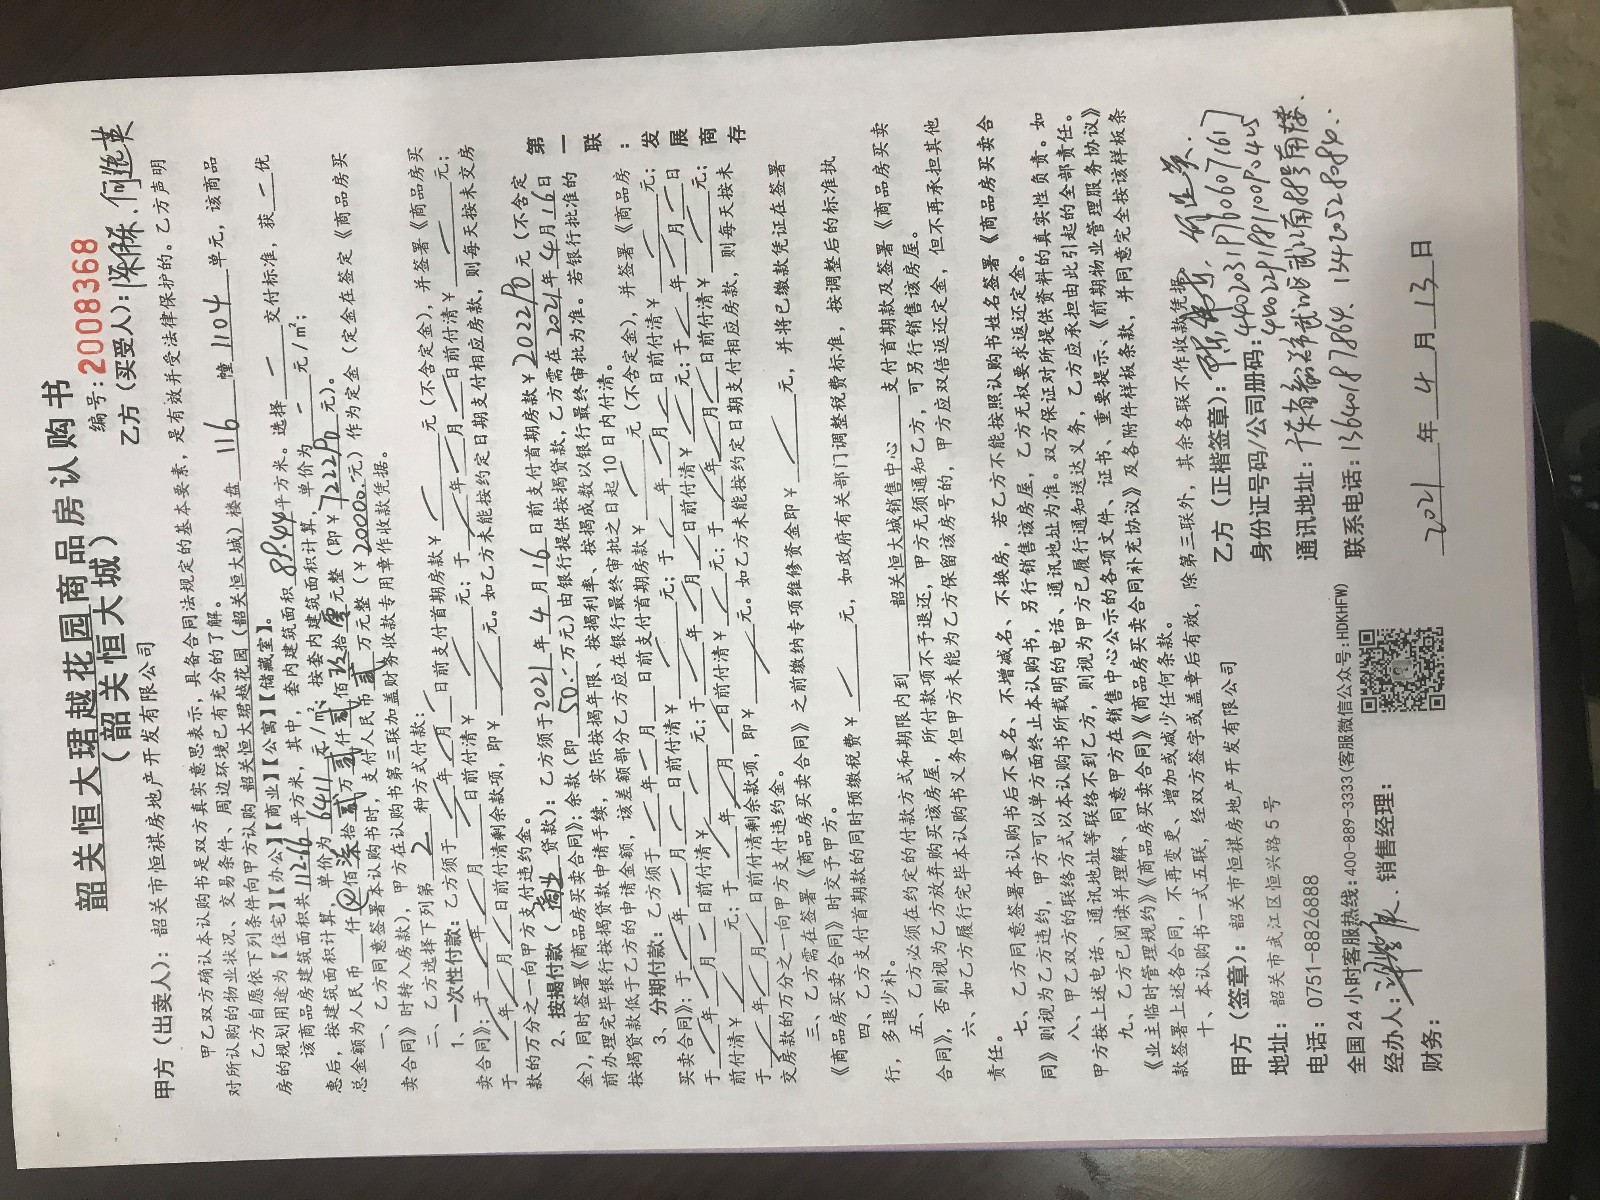 韶关恒大珺越花园商品房认购书
(韶关恒大城)
编号:2008368
甲方(出卖人):韶关市恒祺房地产开发有限公司 乙方(买受人):
甲乙双方确认本认购书是双方真实意思表示,具备合同法规定的基本要素,是有效并受法律保护的。乙方声明
对所认购的物业状况、交易条件、周边环境已有充分的了解。
乙方自愿依下列条件向甲方认购 韶关恒大珺越花园(韶关恒大城)楼盘 116 幢 1104 单元,该商品
房的规划用途为【住宅】【办公】【商业】【公寓】【储藏室】。
该商品房建筑面积共 平方米,其中,套内建筑面积 88.44 平方米。选择 一 交付标准,获 一 优
惠后,按建筑面积计算,单价为 6411 元/㎡;按套内建筑面积计算,单价为 一 元/㎡;
总金额为人民币 仟 佰柒拾贰万贰仟 佰玖拾零元整(即¥ 元)。
一、乙方同意签署本认购书时,支付人民币贰万元整(¥20000.元)作为定金(定金在签定《商品房买
卖合同》时转入房款),甲方在认购书第三联加盖财务收款专用章作收款凭据。
二、乙方选择下列第 2 种方式付款:
1、一次性付款:乙方须于 年 月 日前支付首期房款¥ 元(不含定金),并签署《商品房买
卖合同》;于 年 月 日前付清¥ 元;于 年 月 日前付清¥ 元;
于 年 月 日前付清剩余款项,即¥ 元。如乙方未能按约定日期支付相应房款,则每天按未交房
款的万分之一向甲方支付违约金。
2、按揭付款(商业贷款):乙方须于2021年4月16日前支付首期房款¥ 元(不含定
金),同时签署《商品房买卖合同》;余款(即 50.- 万元)由银行提供按揭贷款,乙方需在2021年4月16日
前办理完毕银行按揭贷款申请手续,实际按揭年限、按揭利率、按揭成数以银行最终审批为准。若银行批准的
按揭贷款低于乙方的申请金额,该差额部分乙方应在银行最终审批之日起10日内付清。
3、分期付款:乙方须于 年 月 日前支付首期房款¥ 元(不含定金),并签署《商品房
买卖合同》;于 年 月 日前付清¥ 元;于 年 月 日前付清¥ 元;
于 年 月 日前付清¥ 元;于 年 月 日前付清¥ 元;于 年 月 日
前付清¥ 元;于 年 月 日前付清¥ 元;于 年 月 日前付清¥ 元;
于 年 月 日前付清剩余款项,即¥ 元。如乙方未能按约定日期支付相应房款,则每天按未
交房款的万分之一向甲方支付违约金。
三、乙方需在签署《商品房买卖合同》之前缴纳专项维修资金即¥ 元,并将已缴款凭证在签署
《商品房买卖合同》时交予甲方。
四、乙方支付首期款的同时预缴税费¥ 元,如政府有关部门调整税费标准,按调整后的标准执
行,多退少补。
五、乙方必须在约定的付款方式和期限内到 韶关恒大城销售中心 支付首期款及签署《商品房买卖
合同》,否则视为乙方放弃购买该房屋,所付款项不予退还,甲方无须通知乙方,可另行销售该房屋。
六、如乙方履行完毕本认购书义务但甲方未能为乙方保留该房号的,甲方应双倍返还定金,但不再承担其他
责任。
七、乙方同意签署本认购书后不更名、不增减名、不换房,若乙方不能按照认购书姓名签署《商品房买卖合
同》则视为乙方违约,甲方可以单方面终止本认购书,另行销售该房屋,乙方无权要求返还定金。
八、甲乙双方的联络方式以本认购书所载明的电话、通讯地址为准。双方保证对所提供资料的真实性负责。如
甲方按上述电话、通讯地址等联络不到乙方,则视为甲方已履行通知送达义务,乙方应承担由此引起的全部责任。
九、乙方已阅读并理解、同意甲方在销售中心公示的各项文件、证书、重要提示、《前期物业管理服务协议》
《业主临时管理规约》《商品房买卖合同》《商品房买卖合同补充协议》及各附件样板条款,并同意完全按该样板条
款签署上述各合同,不再变更、增加或减少任何条款。
十、本认购书一式五联,经双方签字或盖章后有效,除第三联外,其余各联不作收款凭据。
第一联:发展商存
甲方(签章):韶关市恒祺房地产开发有限公司
地址:韶关市武江区恒兴路5号
电话:0751-8826888
全国24小时客服热线:400-889-3333(客服微信公众号:HDKHFW)
经办人: 销售经理:
财务:
乙方(正楷签章):
身份证号码/公司册码:
通讯地址:
联系电话:13640187864. 13420528084.
2021年4月13日